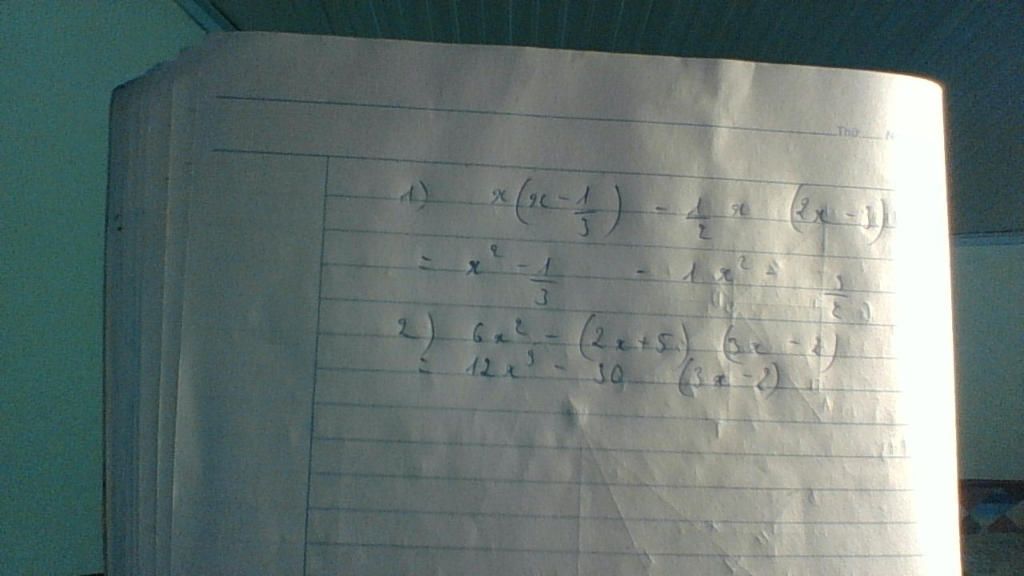 Thứ
1) x(x - 1/3) - 1/2 x (2x - 3)
= x² - 1/3 - 1 x² - 3/2
2) 6x² - (2x+5) (3x - 2)
= 12x³ - 30 (3x - 2)